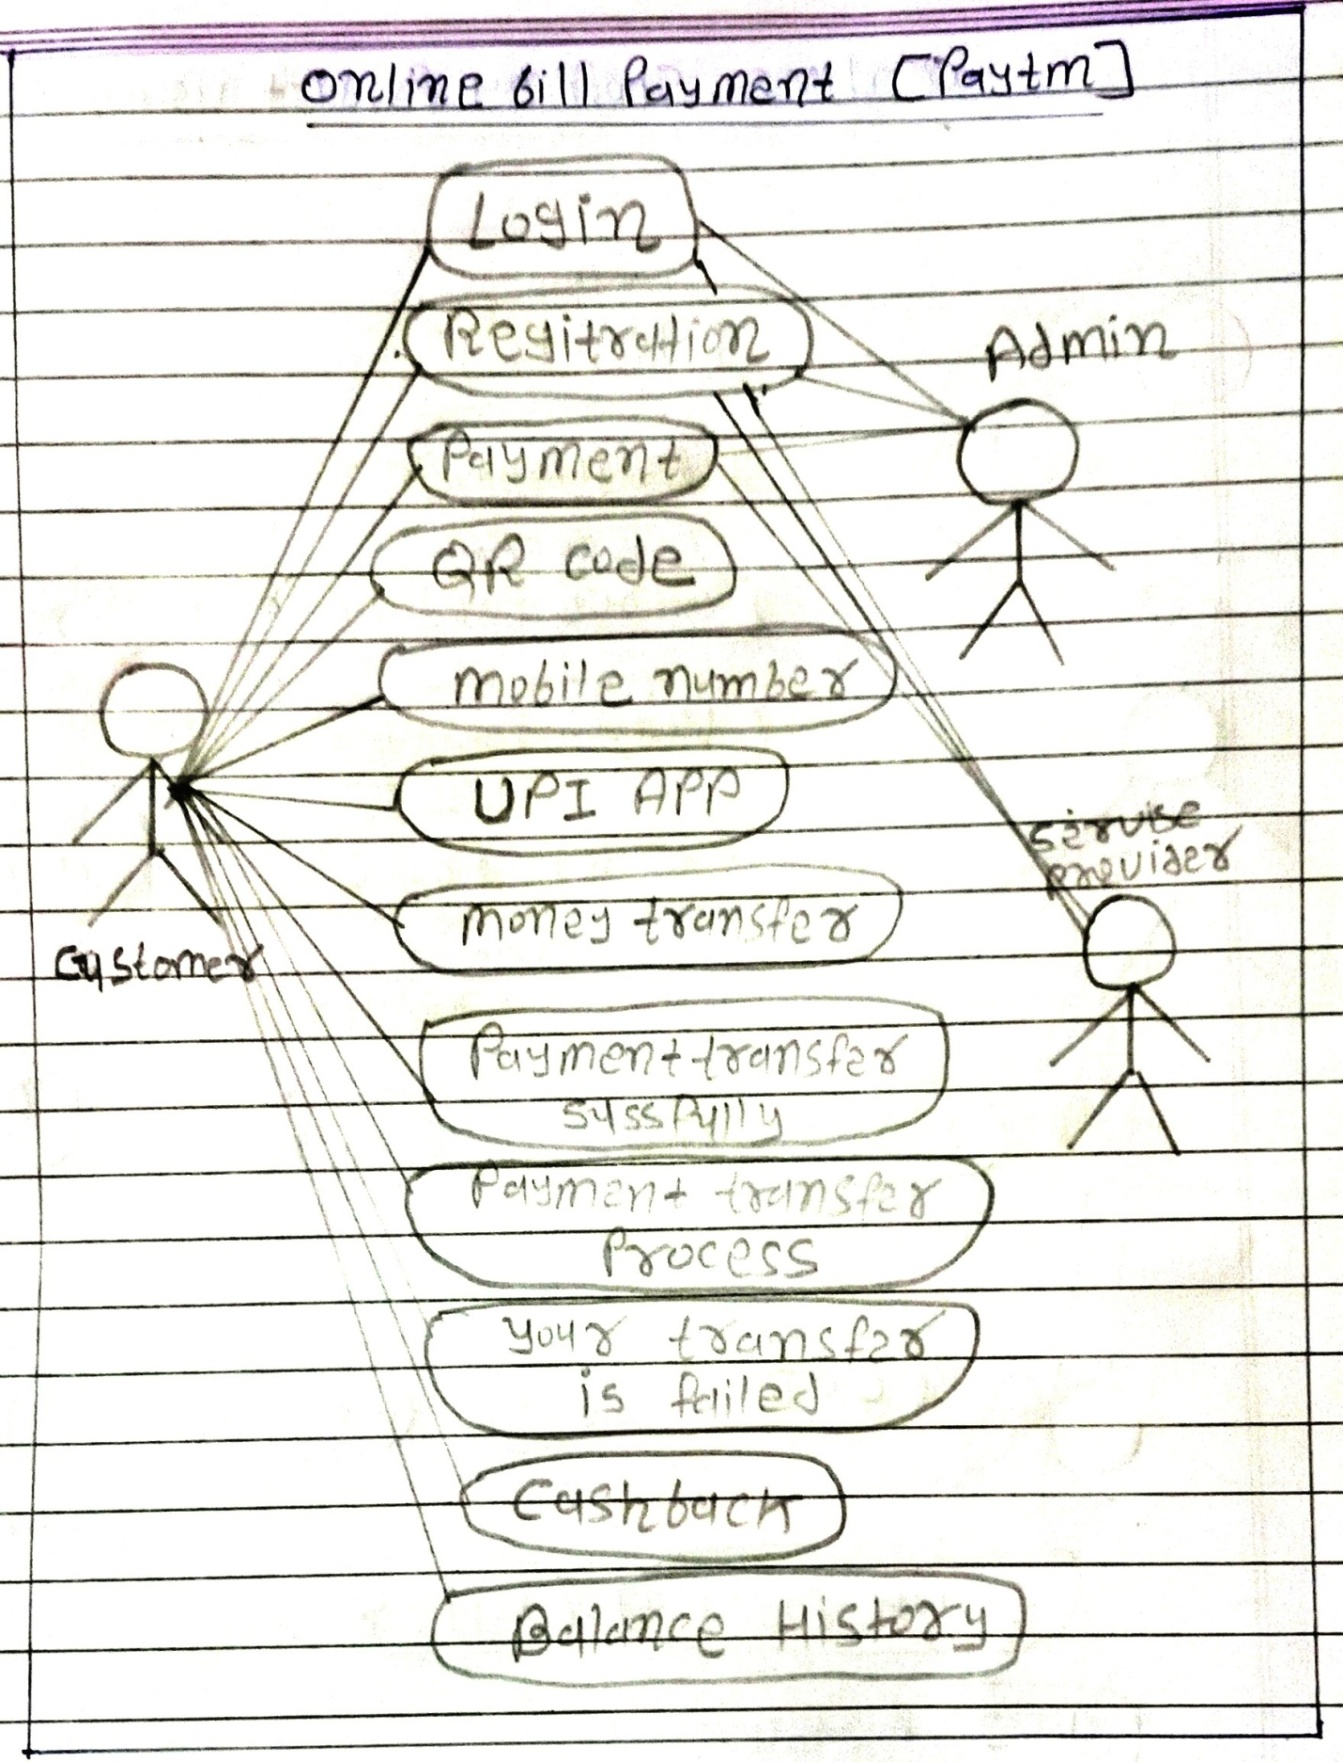 Online bill Payment [Paytm]
Login
Regitration
Admin
Payment
QR code
mobile number
UPI APP
servise
provider
money transfer
Customer
Payment transfer
sussfully
Payment transfer
Process
your transfer
is failed
Cashback
Balance History